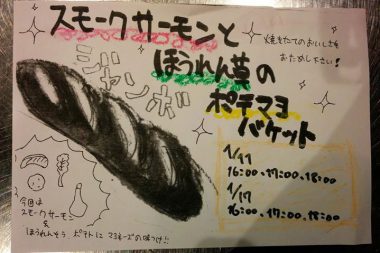 スモークサーモンと
ほうれん草の
ポテマヨ
バケット
ジャンボ
焼きたてのおいしさを
おためし下さい!
1/11
16:00、17:00、18:00
1/17
16:00、17:00、18:00
今回は
スモークサーモン
&
ほうれんそう ポテトに マヨネーズの味つけ!!